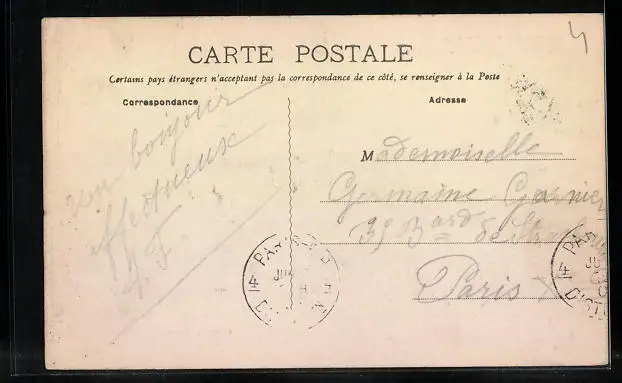 4
CARTE POSTALE
Certains pays étrangers n'acceptant pas la correspondance de ce côté, se renseigner à la Poste
Correspondance
Adresse
un bonjour
affectueux
Mademoiselle
Germaine Garnier
35 Bard de Stras
Paris X
PARIS
JU
14
DIST
14 PAR
JU
DIST